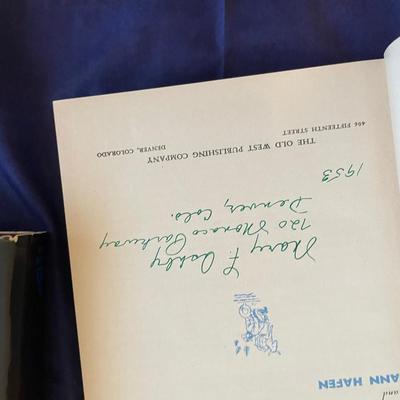 and
ANN HAFEN
Mary F. Ashby
720 Monaco Parkway
Denver, Colo.
1953
THE OLD WEST PUBLISHING COMPANY
406 FIFTEENTH STREET DENVER, COLORADO